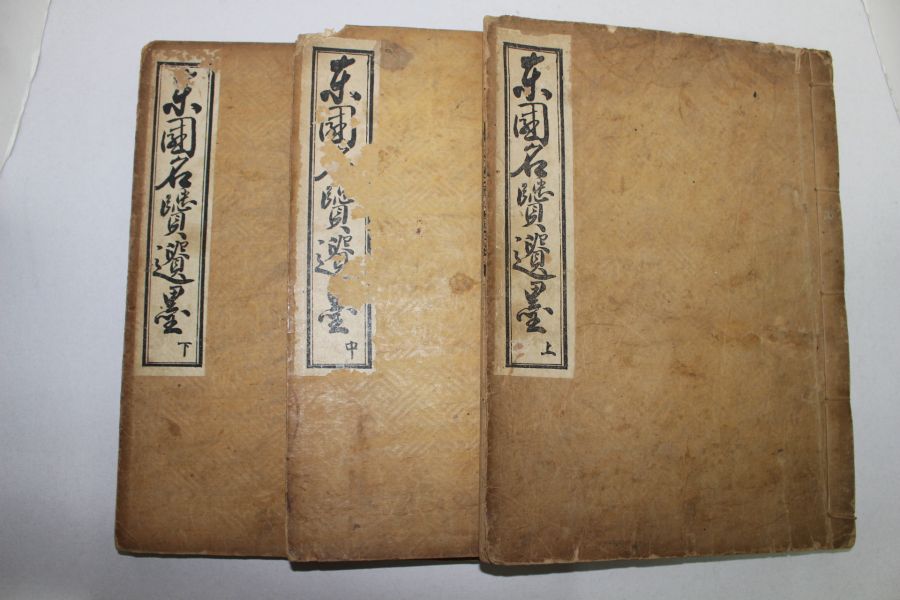 東國名賢遺墨
上
東國賢遺墨
中
東國名賢遺墨
下